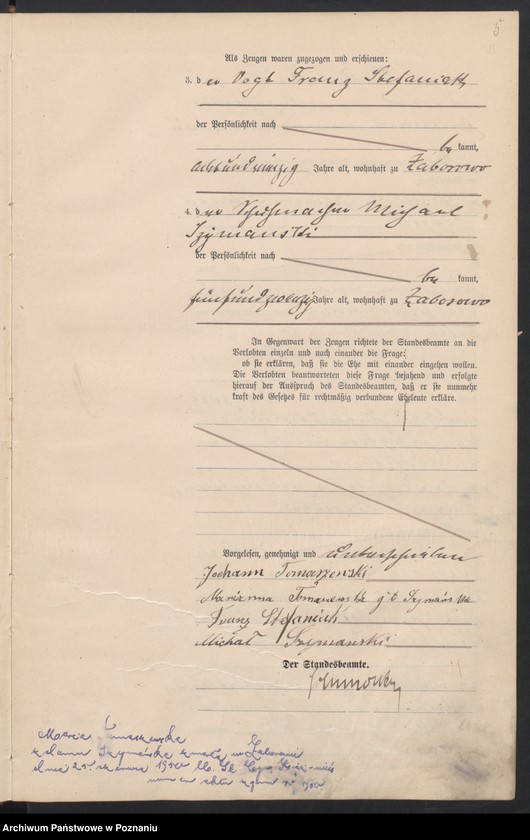 5
Als Zeugen waren zugezogen und erschienen:
3. der Vogt Franz Stefaniak
der Persönlichkeit nach
bekannt,
achtundvierzig Jahre alt, wohnhaft zu Zaborowo
4. der Schuhmacher Michael
Szymanski
der Persönlichkeit nach
bekannt,
fünfundzwanzig Jahre alt, wohnhaft zu Zaborowo
In Gegenwart der Zeugen richtete der Standesbeamte an die
Verlobten einzeln und nach einander die Frage:
ob sie erklären, daß sie die Ehe mit einander eingehen wollen.
Die Verlobten beantworteten diese Frage bejahend und erfolgte
hierauf der Ausspruch des Standesbeamten, daß er sie nunmehr
kraft des Gesetzes für rechtmäßig verbundene Eheleute erkläre.
Vorgelesen, genehmigt und unterschrieben
Johann Tomaszewski
Marianna Tomaszewska gb Szymańska
Franz Stefaniak
Michał Szymanski
Der Standesbeamte.
Maria Tomaszewska
z domu Szymańska zmarła w
dnia 25. czerwca
Archiwum Państwowe w Poznaniu